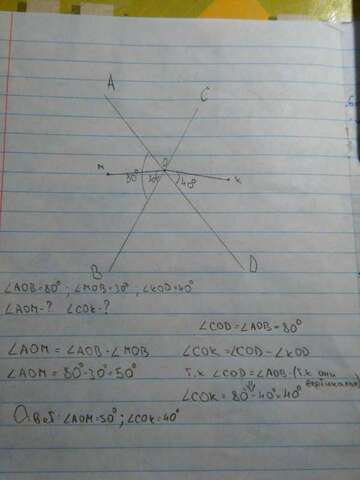 A
C
O
M
80°
30°
40°
K
B
D
∠AOB=80° ; ∠MOB=30° ; ∠KOD=40°
∠AOM-? ∠COK-?
∠COD=∠AOB=80°
∠AOM = ∠AOB-∠MOB
∠COK=∠COD-∠KOD
∠AOM=80°-30°=50°
т.к ∠COD=∠AOB-(т.к они
вертикальн
∠COK = 80°-40°=40°
Ответ: ∠AOM=50° ; ∠COK=40°